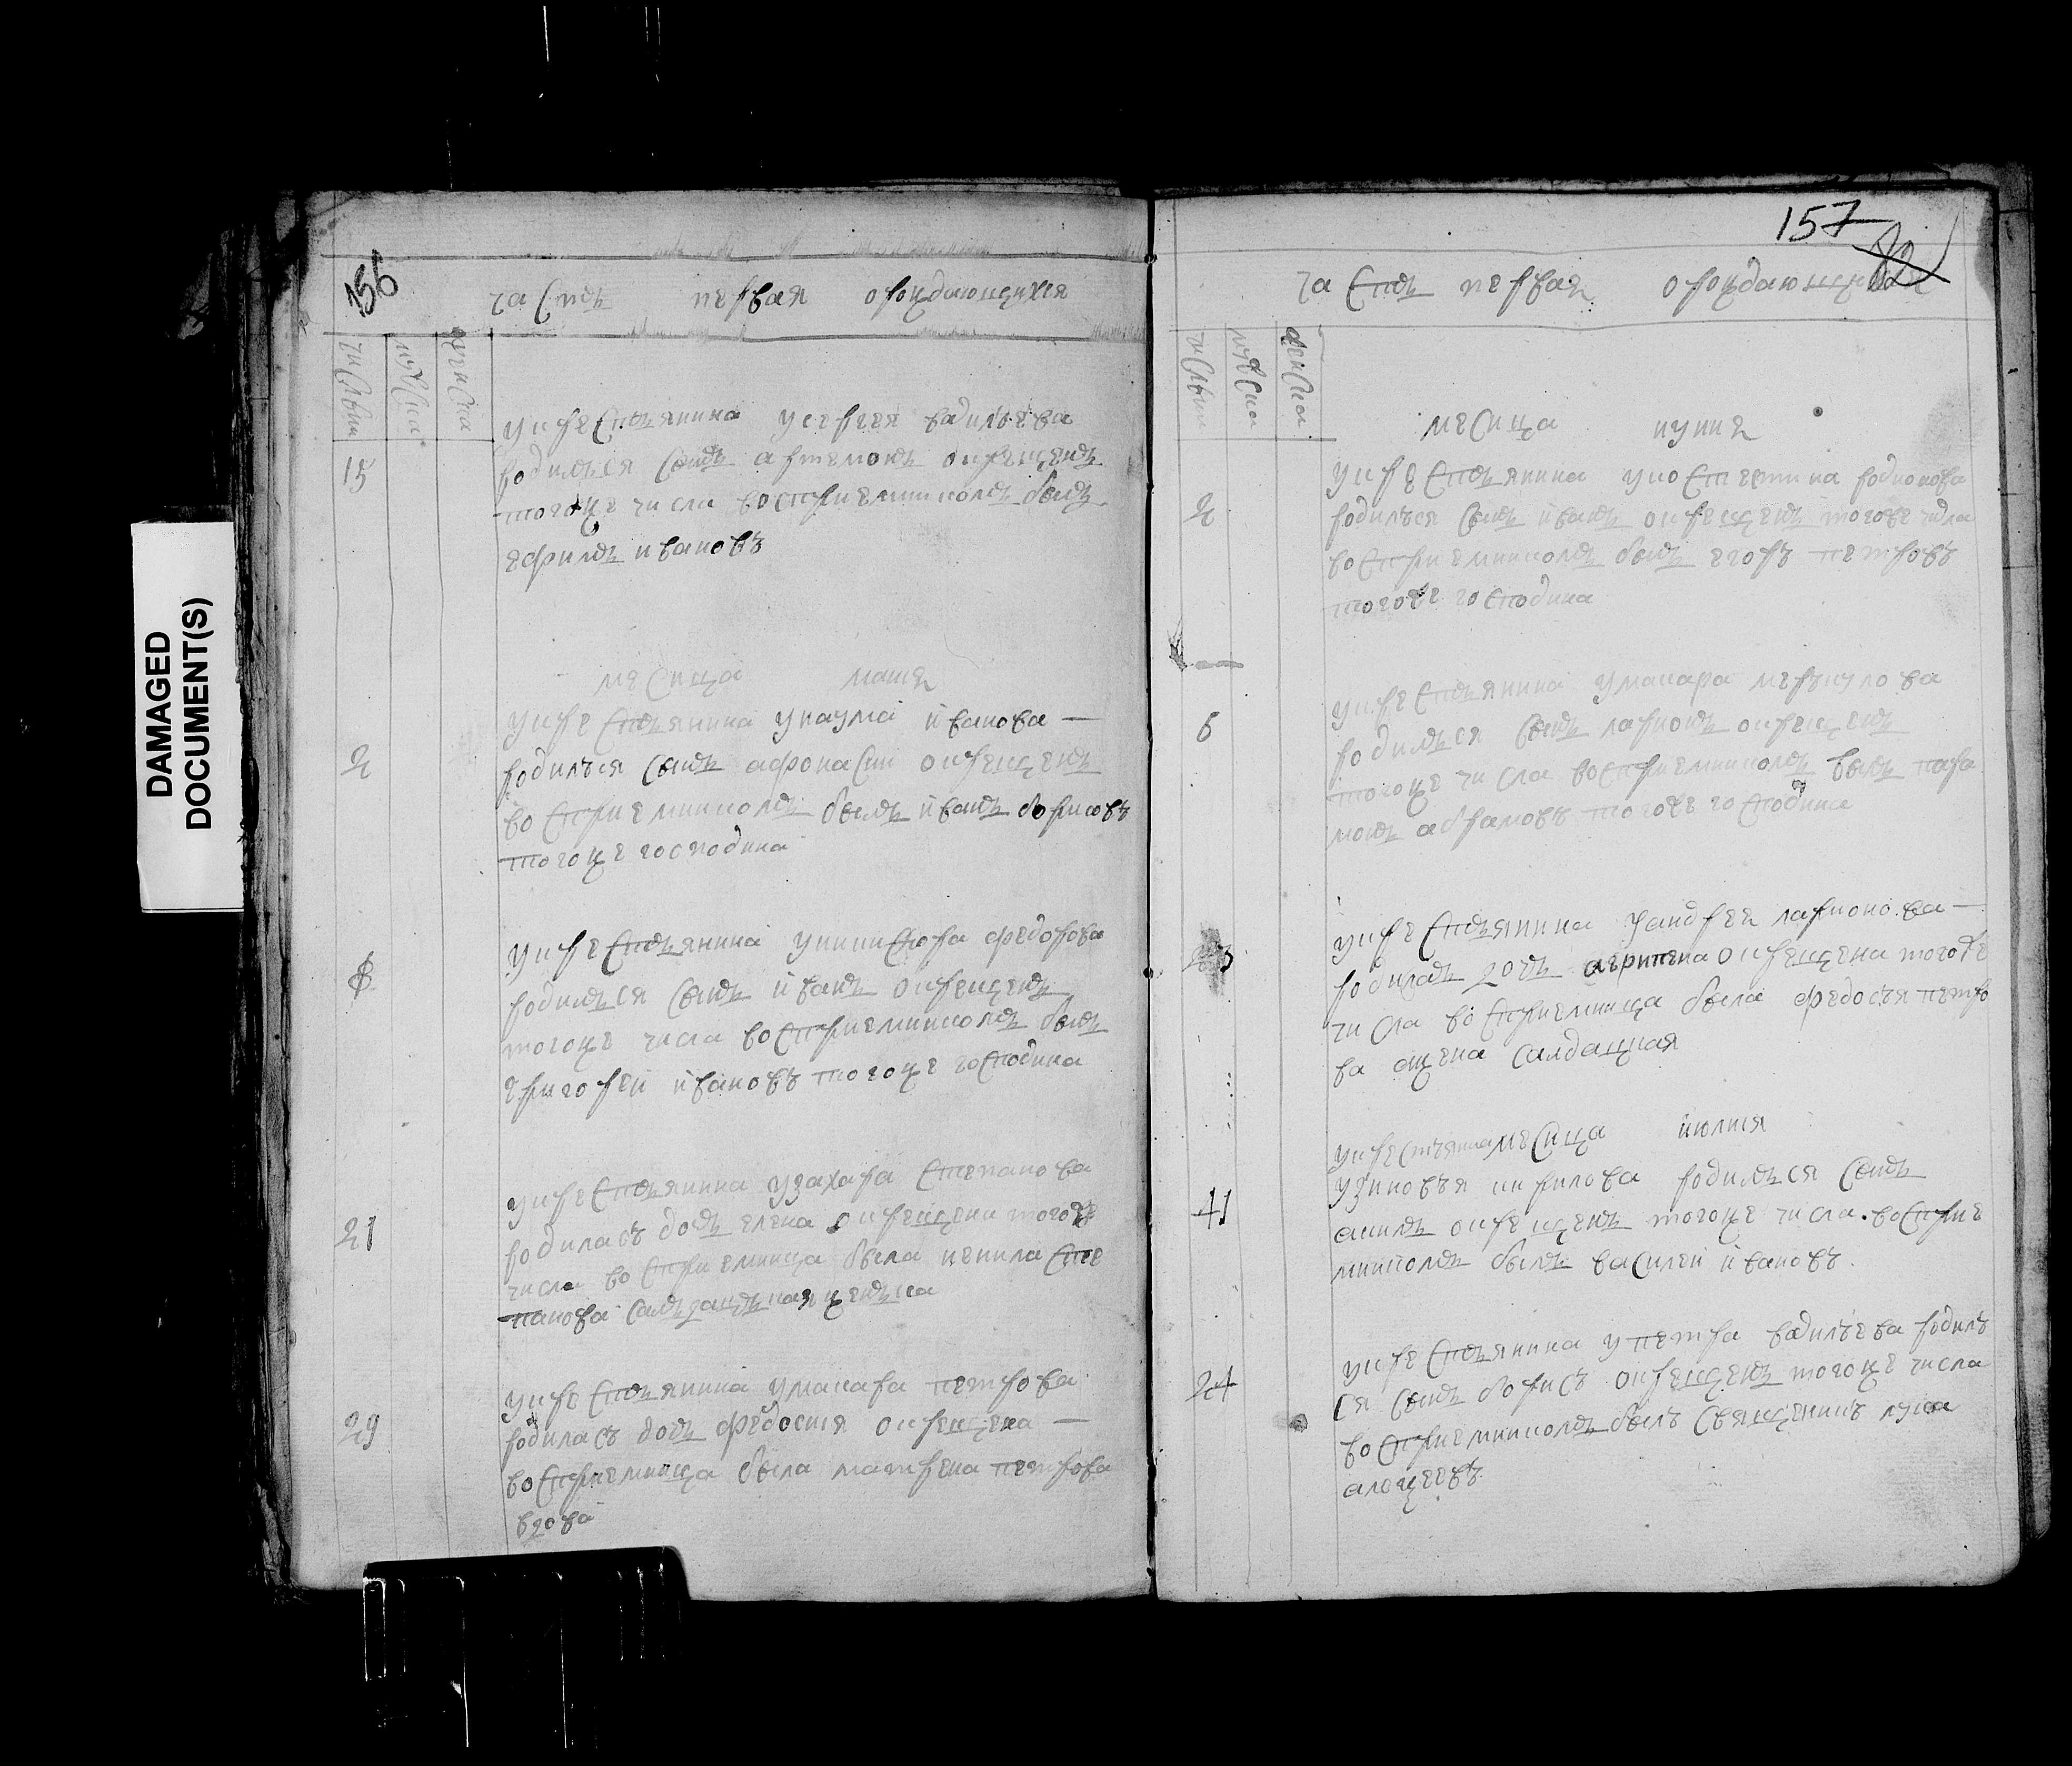 DAMAGED
DOCUMENT(S)
156
часть первая о рождающихся
числы
мужска
женска
15
у крестьянина у сергея василъева
родилься сынь артемонь окрещень
того же числа восприемникомь быль
ефимь ивановъ
месица маия
2
у крестьянина у наума иванова
родилъся сынь афонасии окрещень
восприемникомь быль ивань борисовъ
того же господина
6
у крестьянина у никифора федорова
родилься сынь ивань окрещень
того же числа восприемникомь быль
григореи ивановъ того же господина
21
у крестьянина у захара степанова
родиласъ дочь елена окрещена того же
числа восприемница была
панова
29
у крестьянина у макара петрова
родиласъ дочь федосия окрещена
восприемница была матрена петрова
вдова
157
82
часть первая о рождающихся
числы
мужска
женска
месица иуния
2
у крестьянина родионова
родилъся сынь ивань окрещень того же числа
восприемникомь быль егоръ петровъ
того же господина
6
у крестьянина у макара меркулова
родилься сынь ларионь окрещень
того же числа восприемникомь быль пара
монь абрамовъ того же господина
23
у крестьянина у андрея ларионова
родилась дочь агрипена окрещена того же
числа восприемница была федосъя петро
ва жена салдацкая
у крестъянина месица июлия
11
у зиновъя кирилова родилься сынь
акимь окрещень того же числа восприе
мникомь быль василеи ивановъ
24
у крестьянина у петра василъева родилъ
ся сынь борисъ окрещень того же числа
восприемникомь былъ священникъ лука
алексеевъ